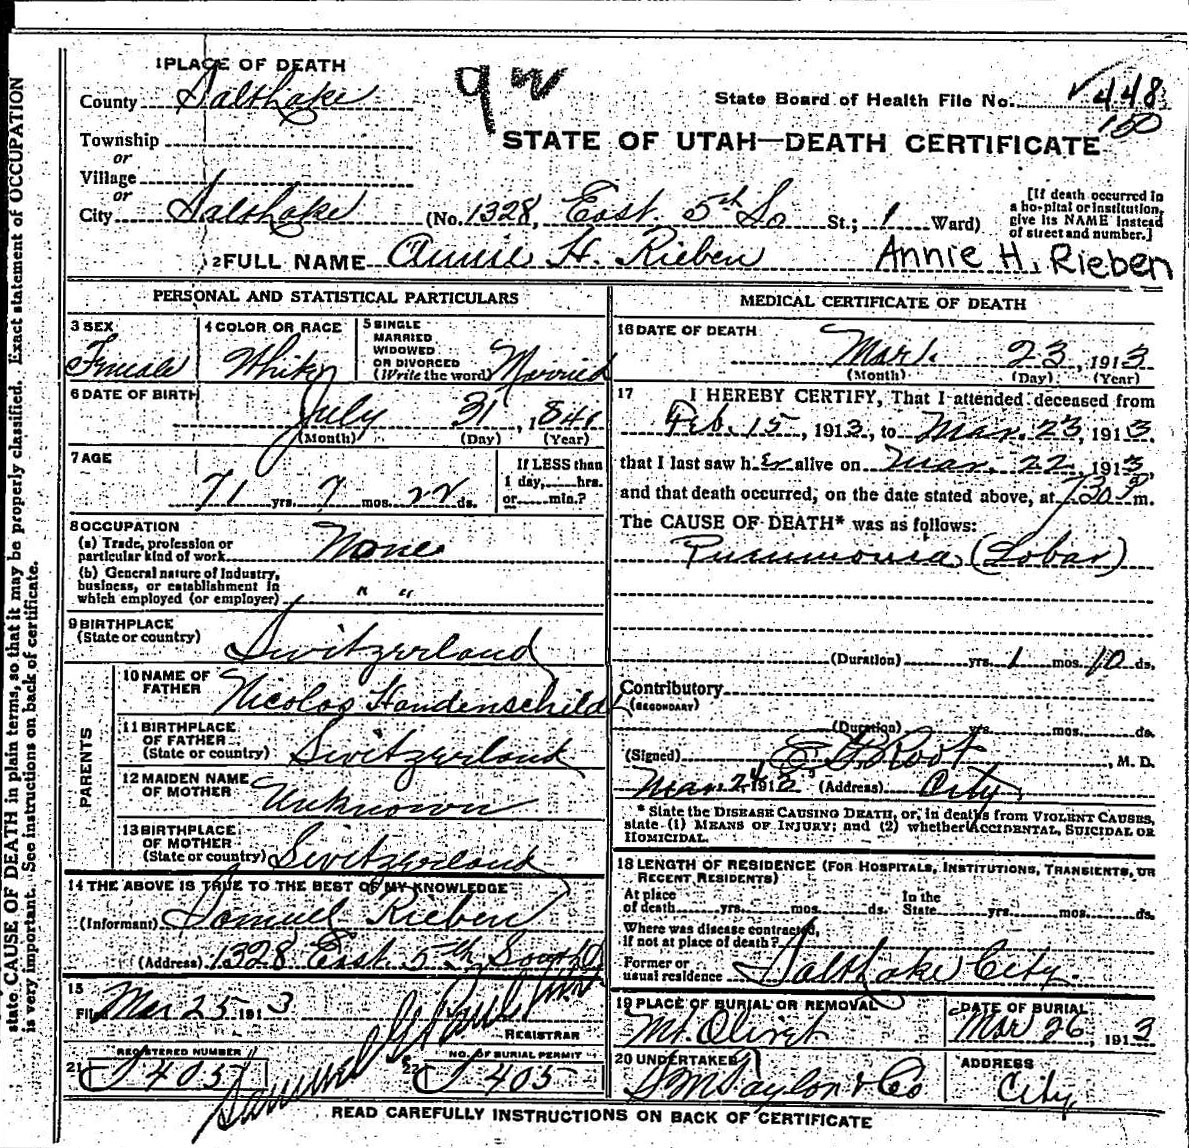 1 PLACE OF DEATH
County Salt Lake
92
State Board of Health File No. 448
150
Township
or
Village
or
STATE OF UTAH—DEATH CERTIFICATE
City Salt Lake (No. 1328, East 5th So St.; 1 Ward)
[If death occurred in a hospital or institution, give its NAME instead of street and number.]
2 FULL NAME Annie H. Rieben Annie H. Rieben
state CAUSE OF DEATH in plain terms, so that it may be properly classified. Exact statement of OCCUPATION
is very important. See instructions on back of certificate.
PERSONAL AND STATISTICAL PARTICULARS
3 SEX
Female
4 COLOR OR RACE
White
5 SINGLE
MARRIED
WIDOWED
OR DIVORCED
(Write the word) Married
6 DATE OF BIRTH
July 31, 1841
(Month) (Day) (Year)
7 AGE
71 yrs. 7 mos. 22 ds.
If LESS than
1 day, hrs.
or min.?
8 OCCUPATION
(a) Trade, profession or
particular kind of work None
(b) General nature of Industry,
business, or establishment in
which employed (or employer) " "
9 BIRTHPLACE
(State or country) Switzerland
PARENTS
10 NAME OF
FATHER Nicolos Handenschild
11 BIRTHPLACE
OF FATHER
(State or country) Switzerland
12 MAIDEN NAME
OF MOTHER Unknown
13 BIRTHPLACE
OF MOTHER
(State or country) Switzerland
14 THE ABOVE IS TRUE TO THE BEST OF MY KNOWLEDGE
(Informant) Samuel Rieben
(Address) 1328 East 5th South
15
Filed Mar 25 1913
REGISTRAR
REGISTERED NUMBER
21 405
NO. OF BURIAL PERMIT
22 405
MEDICAL CERTIFICATE OF DEATH
16 DATE OF DEATH
Mar. 23, 1913
(Month) (Day) (Year)
17 I HEREBY CERTIFY, That I attended deceased from
Feb. 15, 1913, to Mar. 23, 1913.
that I last saw her alive on Mar. 22 1913,
and that death occurred, on the date stated above, at 7:20 P m.
The CAUSE OF DEATH* was as follows:
Pneumonia (Lobar)
(Duration) yrs. 1 mos. 10 ds.
Contributory
(SECONDARY)
(Duration) yrs. mos. ds.
(Signed) E F Root, M. D.
Mar. 24 1913 (Address) City
* State the DISEASE CAUSING DEATH, or, in deaths from VIOLENT CAUSES,
state (1) MEANS OF INJURY; and (2) whether ACCIDENTAL, SUICIDAL OR
HOMICIDAL.
18 LENGTH OF RESIDENCE (FOR HOSPITALS, INSTITUTIONS, TRANSIENTS, OR
RECENT RESIDENTS)
At place
of death yrs. mos. ds. In the State yrs. mos. ds.
Where was disease contracted,
if not at place of death?
Former or
usual residence Salt Lake City
19 PLACE OF BURIAL OR REMOVAL
Mt. Olivet
DATE OF BURIAL
Mar 26, 1913
20 UNDERTAKER
S M Taylor & Co
ADDRESS
City
READ CAREFULLY INSTRUCTIONS ON BACK OF CERTIFICATE